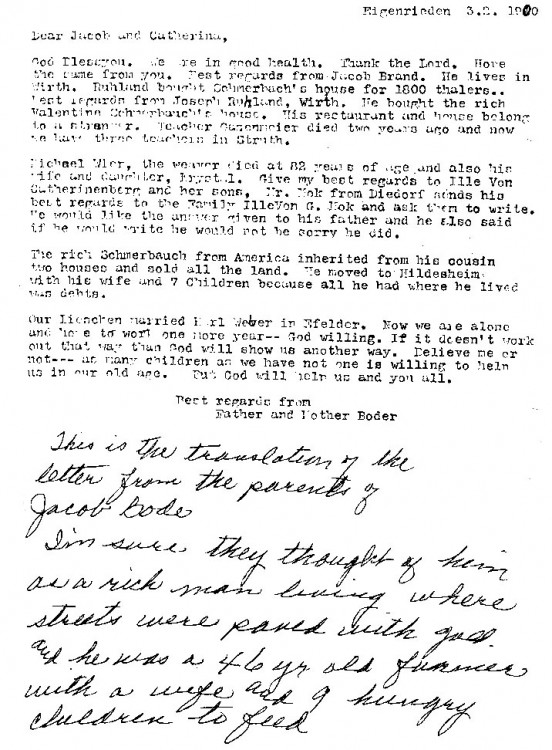 Eigenrieden 3.2. 1900
Dear Jacob and Catherina,
God Blessyou. We are in good health. Thank the Lord. Hope
the same from you. Best regards from Jacob Brand. He lives in
Wirth. Ruhland bought Schmerbach's house for 1800 thalers..
Best regards from Joseph Ruhland, Wirth. He bought the rich
Valentine Schmerbauch's house. His restaurant and house belong
to a stranger. Teacher died two years ago and now
we have three teachers in Struth.
Michael Wier, the weaver died at 82 years of age and also his
wife and daughter, Give my best regards to Ille Von
Catherinenberg and her sons, Mr. Hok from Diedorf sends his
best regards to the Family IlleVon G. Hok and ask them to write.
He would like the answer given to his father and he also said
if he would write he would not be sorry he did.
The rich Schmerbauch from America inherited from his cousin
two houses and sold all the land. He moved to Hildesheim
with his wife and 7 Children because all he had where he lived
was debts.
Our Lieschen married Karl Weber in Efelder. Now we are alone
and have to work one more year-- God willing. If it doesn't work
out that way than God will show us another way. Believe me or
not--- as many children as we have not one is willing to help
us in our old age. But God will help us and you all.
Best regards from
Father and Mother Boder
This is the translation of the
letter from the parents of
Jacob Bode
I'm sure they thought of him
as a rich man living where
streets were paved with gold.
and he was a 46 yr old farmer
with a wife and 9 hungry
children to feed